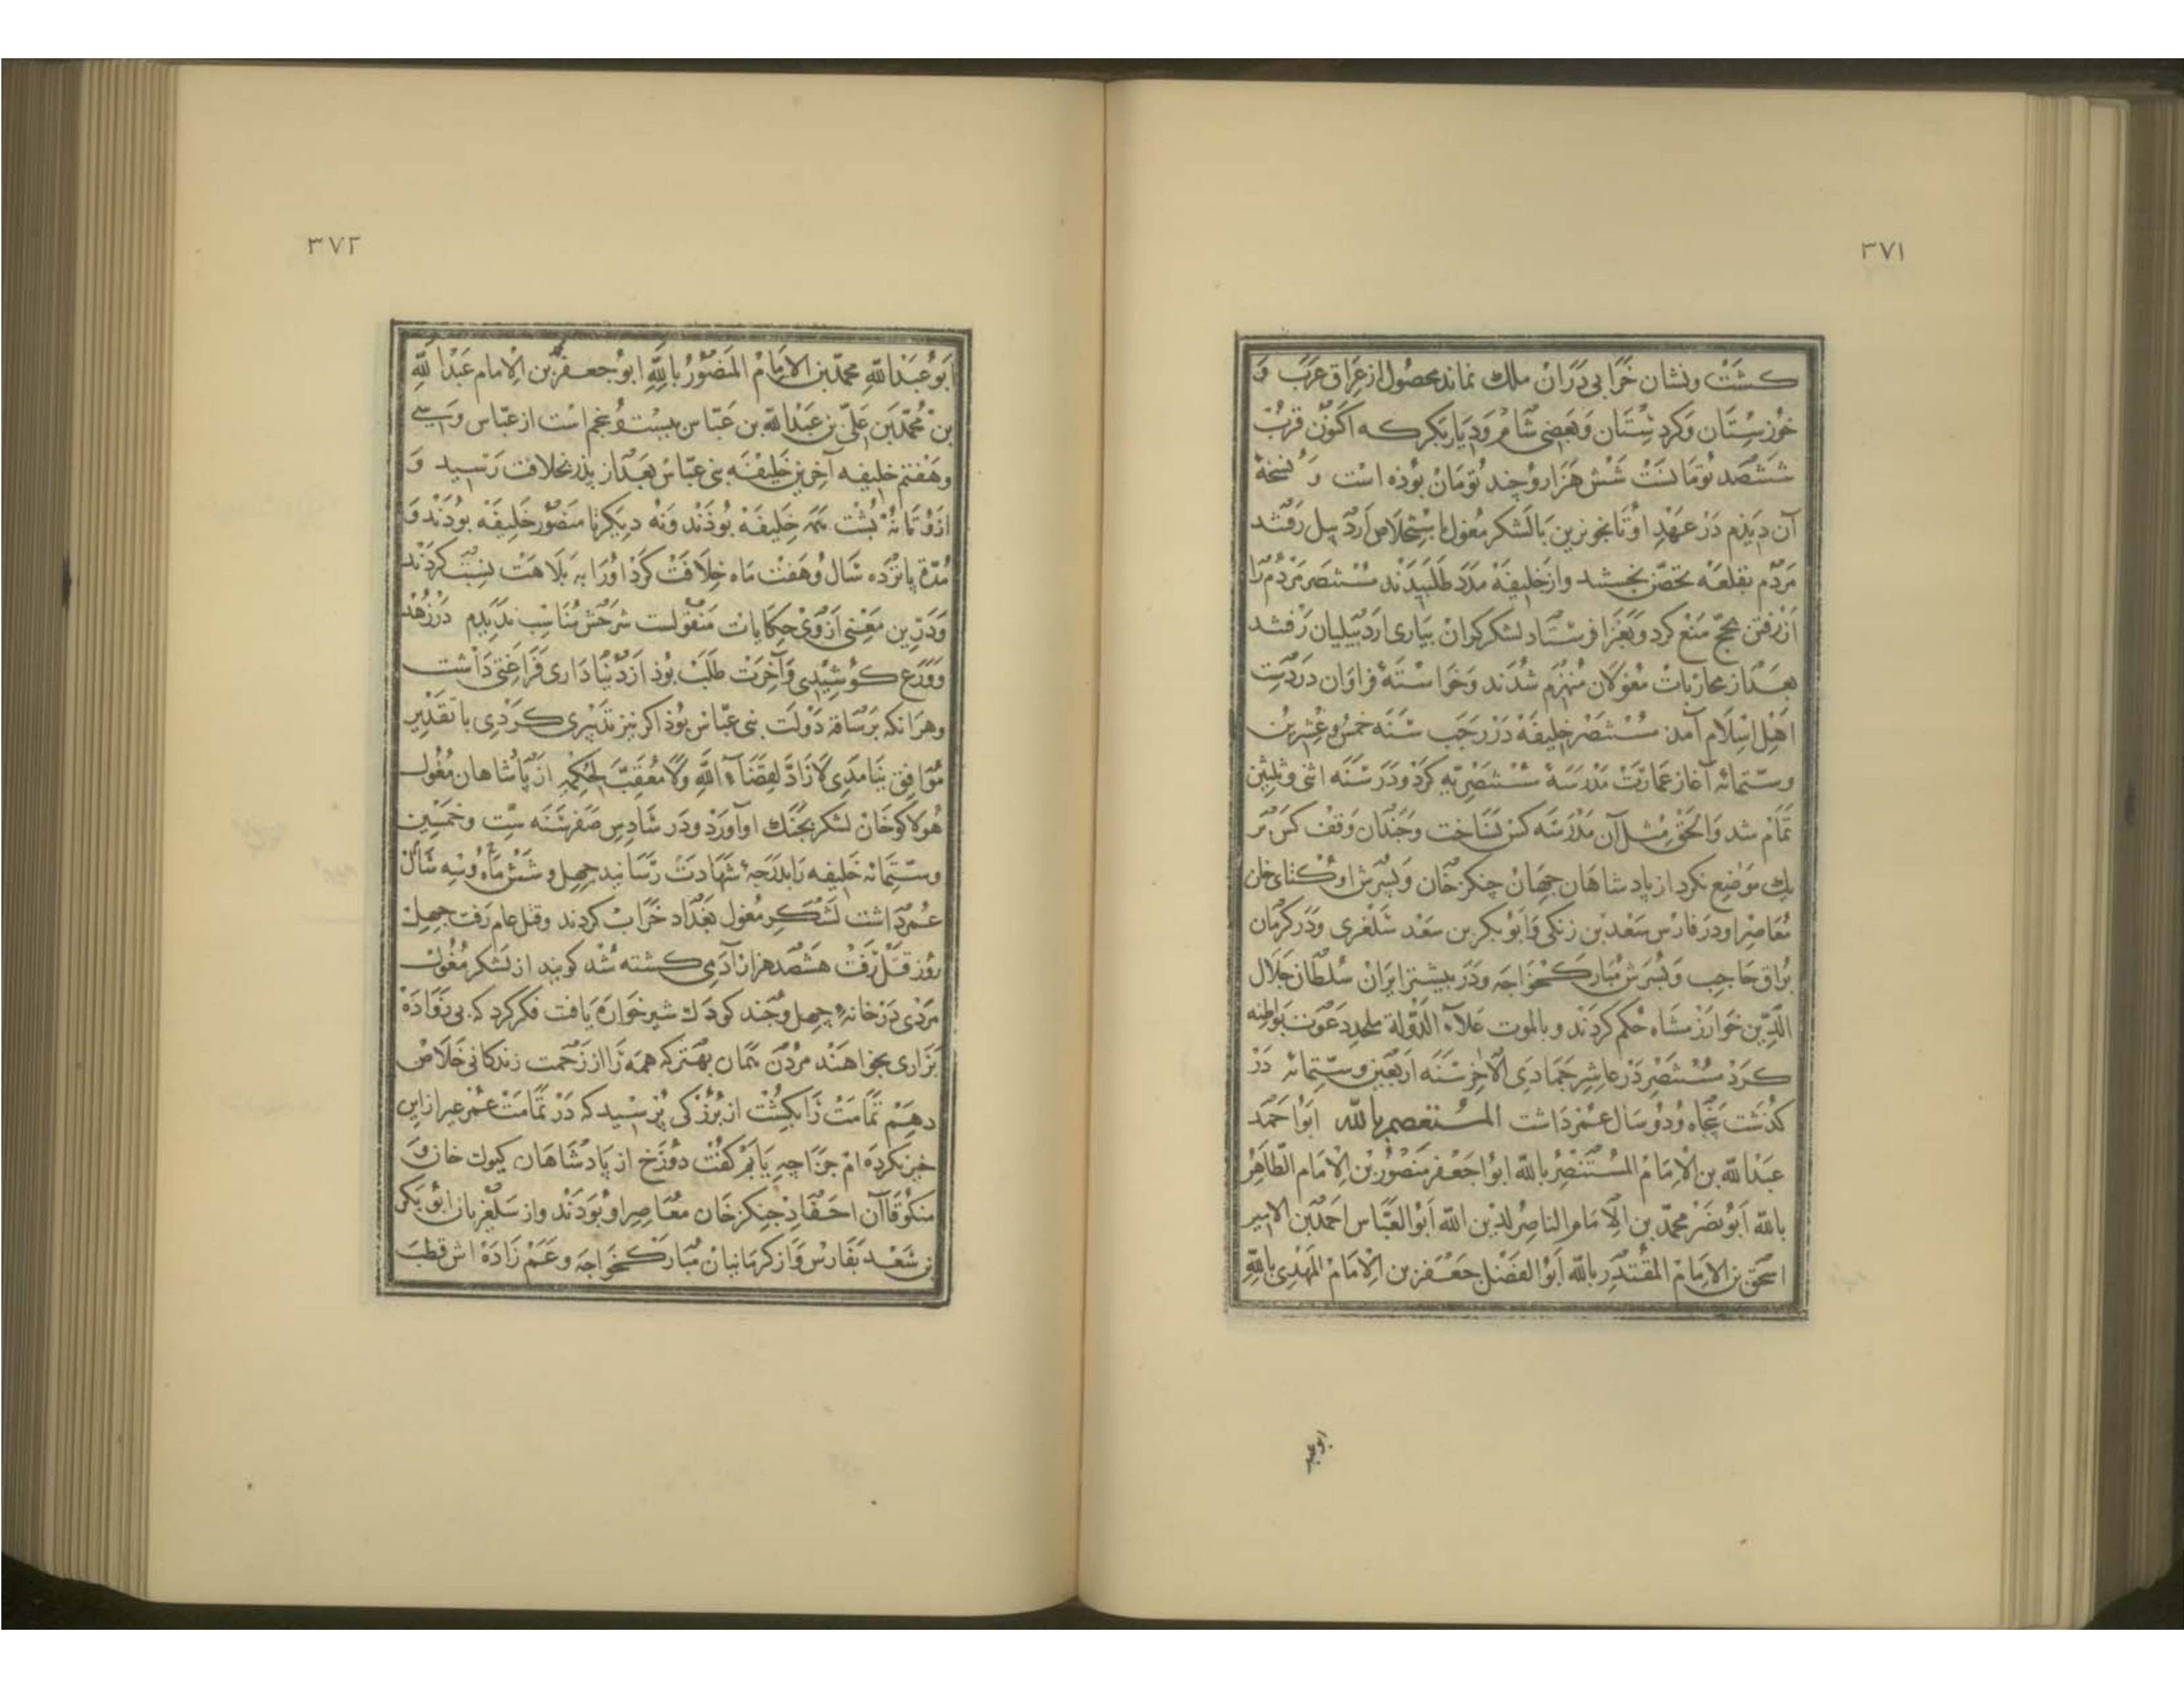 ٣٧١
كشت ونشان خرابى دران ملك نماند محصول از عراق عرب و
خوزستان وكردستان وبعضى شام وديار بكر كه اكنون قرب
ششصد تومانست شش هزار وچند تومان بوذه است و نسخهٔ
آن ديذم در عهد او تايجو نويين با لشكر مغول باستخلاص اردبيل رفتند
مردم بقلعه تحصن جستند واز خليفه مدد طلبيدند مستنصر مردم را
از رفتن بحج منع كرد وبغزا فرستاد لشكر كران بيارى اردبيليان رفتند
بعد از محاربات مغولان منهزم شدند وخواستهٔ فراوان در دست
اهل اسلام آمد مستنصر خليفه در رجب سنه خمس وعشرين
وستمائه آغاز عمارت مدرسهٔ مستنصريه كرد ودر سنه اثنى وثلثين
تمام شد والحق مثل آن مدرسه كس نساخت وچندان وقف كس بر
يك موضع نكرد از پادشاهان جهان چنكز خان وپسرش اوكتاى خان
معاصر او ودر فارس سعد بن زنكى وابو بكر بن سعد سلغرى ودر كرمان
براق حاجب وپسرش مبارك خواجه ودر بيشتر ايران سلطان جلال
الدين خوارزمشاه حكم كردند وبالموت علاء الدولة ملحد دعوت بواطنه
كرد مستنصر در عاشر جمادى الآخر سنه اربعين وستمائه در
كذشت پنجاه ودو سال عمر داشت المستعصم بالله ابو احمد
عبد الله بن الامام المستنصر بالله ابو جعفر منصور بن الامام الطاهر
بالله ابو نصر محمد بن الامام الناصر لدين الله ابو العباس احمد بن الامير
اسحق بن الامام المقتدر بالله ابو الفضل جعفر بن الامام المهدى بالله
ابو عبد
٣٧٢
ابو عبد الله محمد بن الامام المنصور بالله ابو جعفر بن الامام عبد الله
بن محمد بن على بن عبد الله بن عباس بيست وپنجم است از عباس وسى
وهفتم خليفه آخرين خليفه بنى عباس بعد از پذر بخلافت رسيد و
ازو تا نه پشت همه خليفه بوذند ونه ديكر تا منصور خليفه بودند و
مدة پانزده سال وهفت ماه خلافت كرد او را به بلاهت نسبت كردند
ودرين معنى ازوى حكايات منقولست شرحش مناسب نديدم در زهد
وورع كوشيدى وآخرت طلب بوذ از دنيا دارى فراغتى داشت
وهرانكه برساقهٔ دولت بنى عباس بوذ اكر نيز تدبيرى كردى با تقدير
موافق نيامدى لا راد لقضاء الله ولا معقب لحكمه از پاشاهان مغول
هولاكو خان لشكر بجنك او آورد ودر سادس صفر سنه ست وخمسين
وستمائه خليفه را بدرجهٔ شهادت رسانيد چهل وشش ماه وسه سال
عمر داشت لشكر مغول بغداد خراب كردند وقتل عام رفت چهل
روز قتل رفت هشصد هزار آدمى كشته شد كويند از لشكر مغول
مردى در خانهٔ چهل وچند كودك شير خواره يافت فكر كرد كه بى زواده
بزارى بخواهند مردن همان بهتر كه همه را از زحمت زندكانى خلاص
دهم تمامت را بكشت از بزركى پرسيد كه در تمامت عمر غير ازاين
خير نكرده ام جزا چه يابم كفت دوزخ از پادشاهان كيوك خان و
منكوقاآن احفاد جنكز خان معاصر او بودند واز سلغريان ابو بكر
بن سعد بفارس واز كرمانيان مبارك خواجه وعم زاده اش قطب